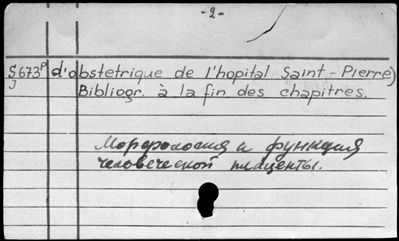 -2-
S673p d'obstetrique de l'hopital Saint-Pierre)
J Bibliogr. à la fin des chapitres.
Морфология и функция
человеческой плаценты.